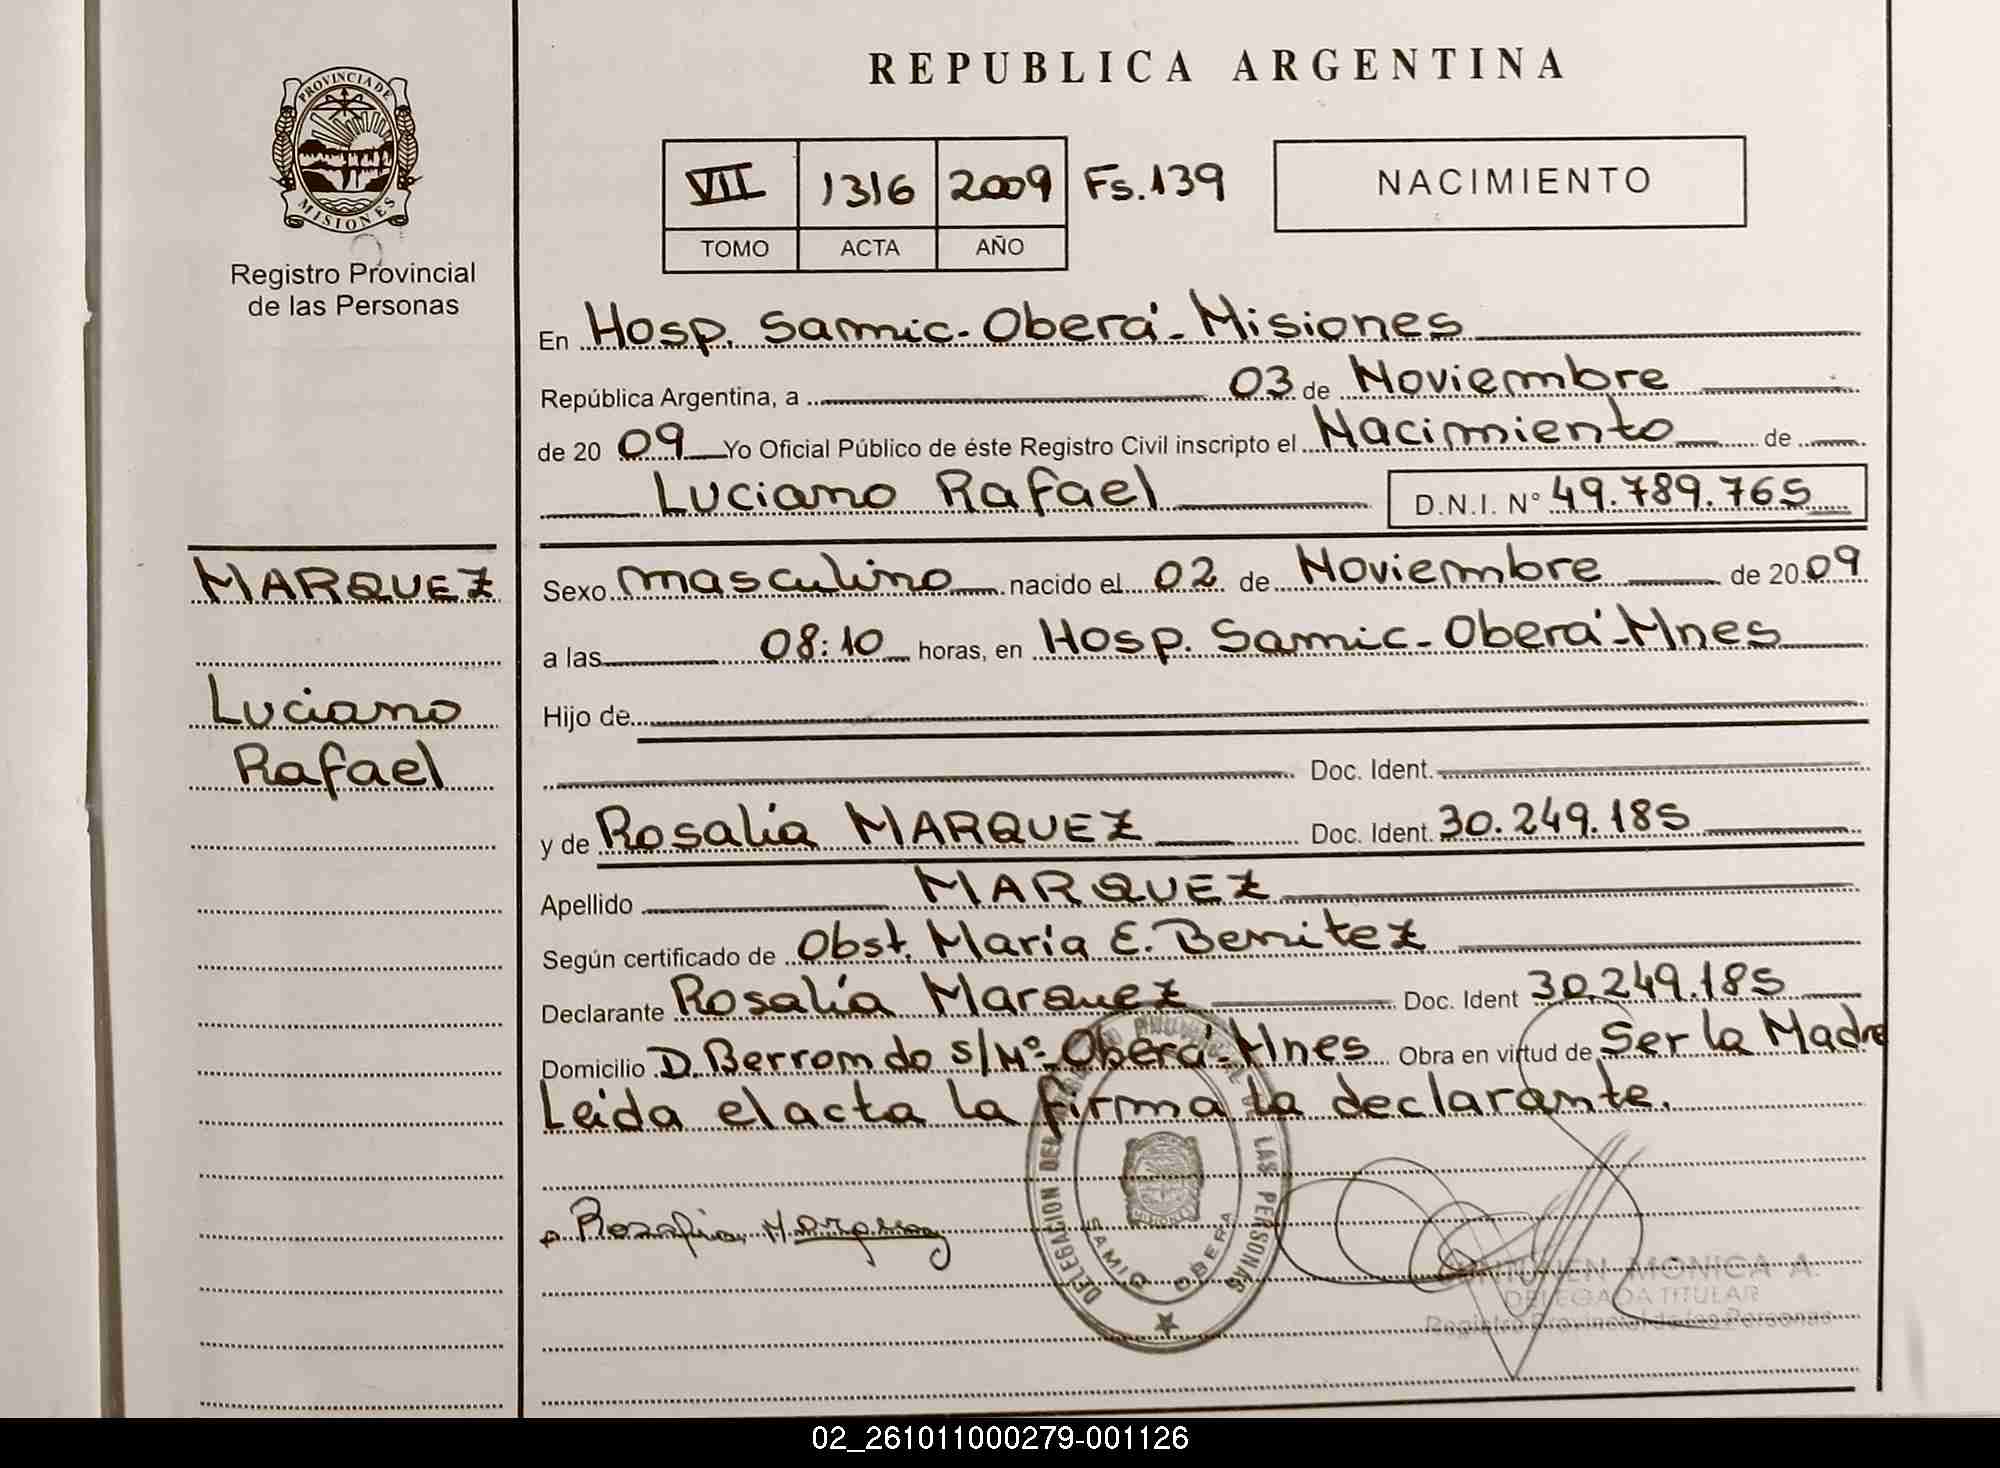 REPUBLICA ARGENTINA
PROVINCIA DE
MISIONES
Registro Provincial
de las Personas
VII 1316 2009 Fs. 139
TOMO ACTA AÑO
NACIMIENTO
En Hosp. Samic - Oberá - Misiones
República Argentina, a 03 de Noviembre
de 2009 Yo Oficial Público de éste Registro Civil inscripto el Nacimiento de
Luciano Rafael D.N.I. Nº 49.789.765
MARQUEZ
Luciano
Rafael
Sexo masculino nacido el 02 de Noviembre de 2009
a las 08:10 horas, en Hosp. Samic - Oberá - Mnes
Hijo de
Doc. Ident.
y de Rosalía MARQUEZ Doc. Ident. 30.249.185
Apellido MARQUEZ
Según certificado de Obst. María E. Benitez
Declarante Rosalía Marquez Doc. Ident 30.249.185
Domicilio D. Berrondo s/Nº - Oberá - Mnes Obra en virtud de Ser la Madre
Leída el acta la firma la declarante.
DELEGACION DEL REGISTRO PROVINCIAL DE LAS PERSONAS
SAMIC OBERA
MONICA A.
DELEGADA TITULAR
Registro Provincial de las Personas
02_261011000279-001126